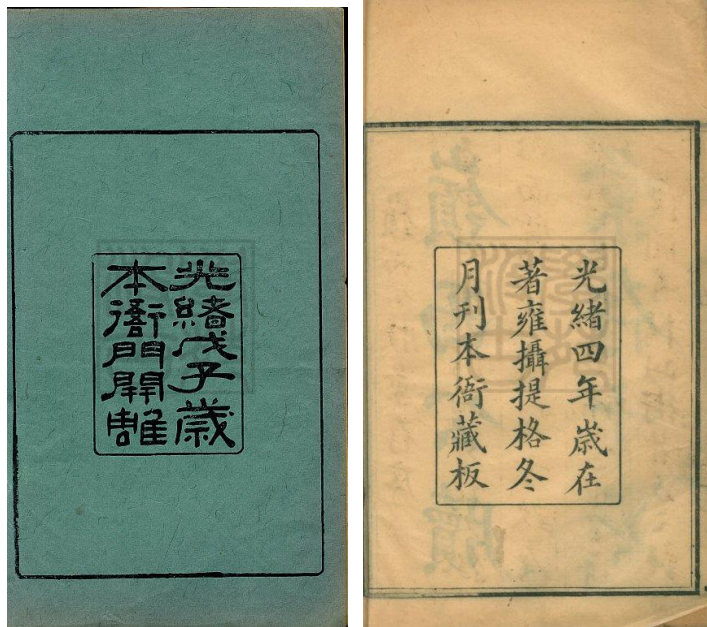 光緒戊子歲
本衙門開雕
光緒四年歲在
著雍攝提格冬
月刊本衙藏板